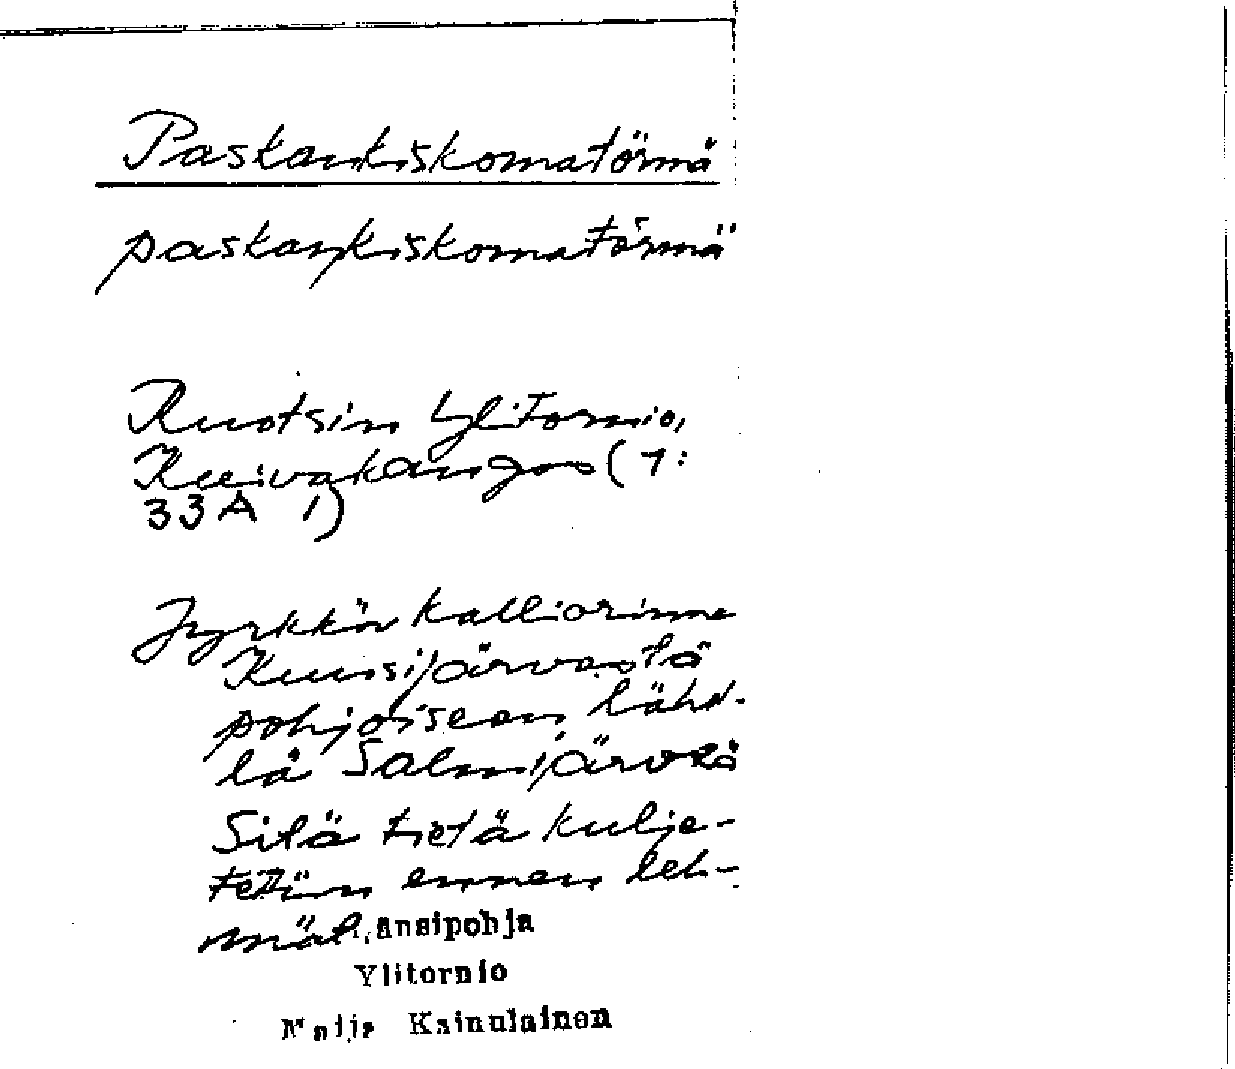 Paskankiskomatörmä
paskaŋkiskomatörmä
Ruotsin Ylitornio,
Kuivakangas (7:
33A 1)
Jyrkkä kalliorinne
Kuusijärvestä
pohjoiseen lähel-
lä Salmijärveä
Sitä tietä kulje-
tettiin ennen leh-
mät.
Länsipohja
Ylitornio
Maija Kainulainen